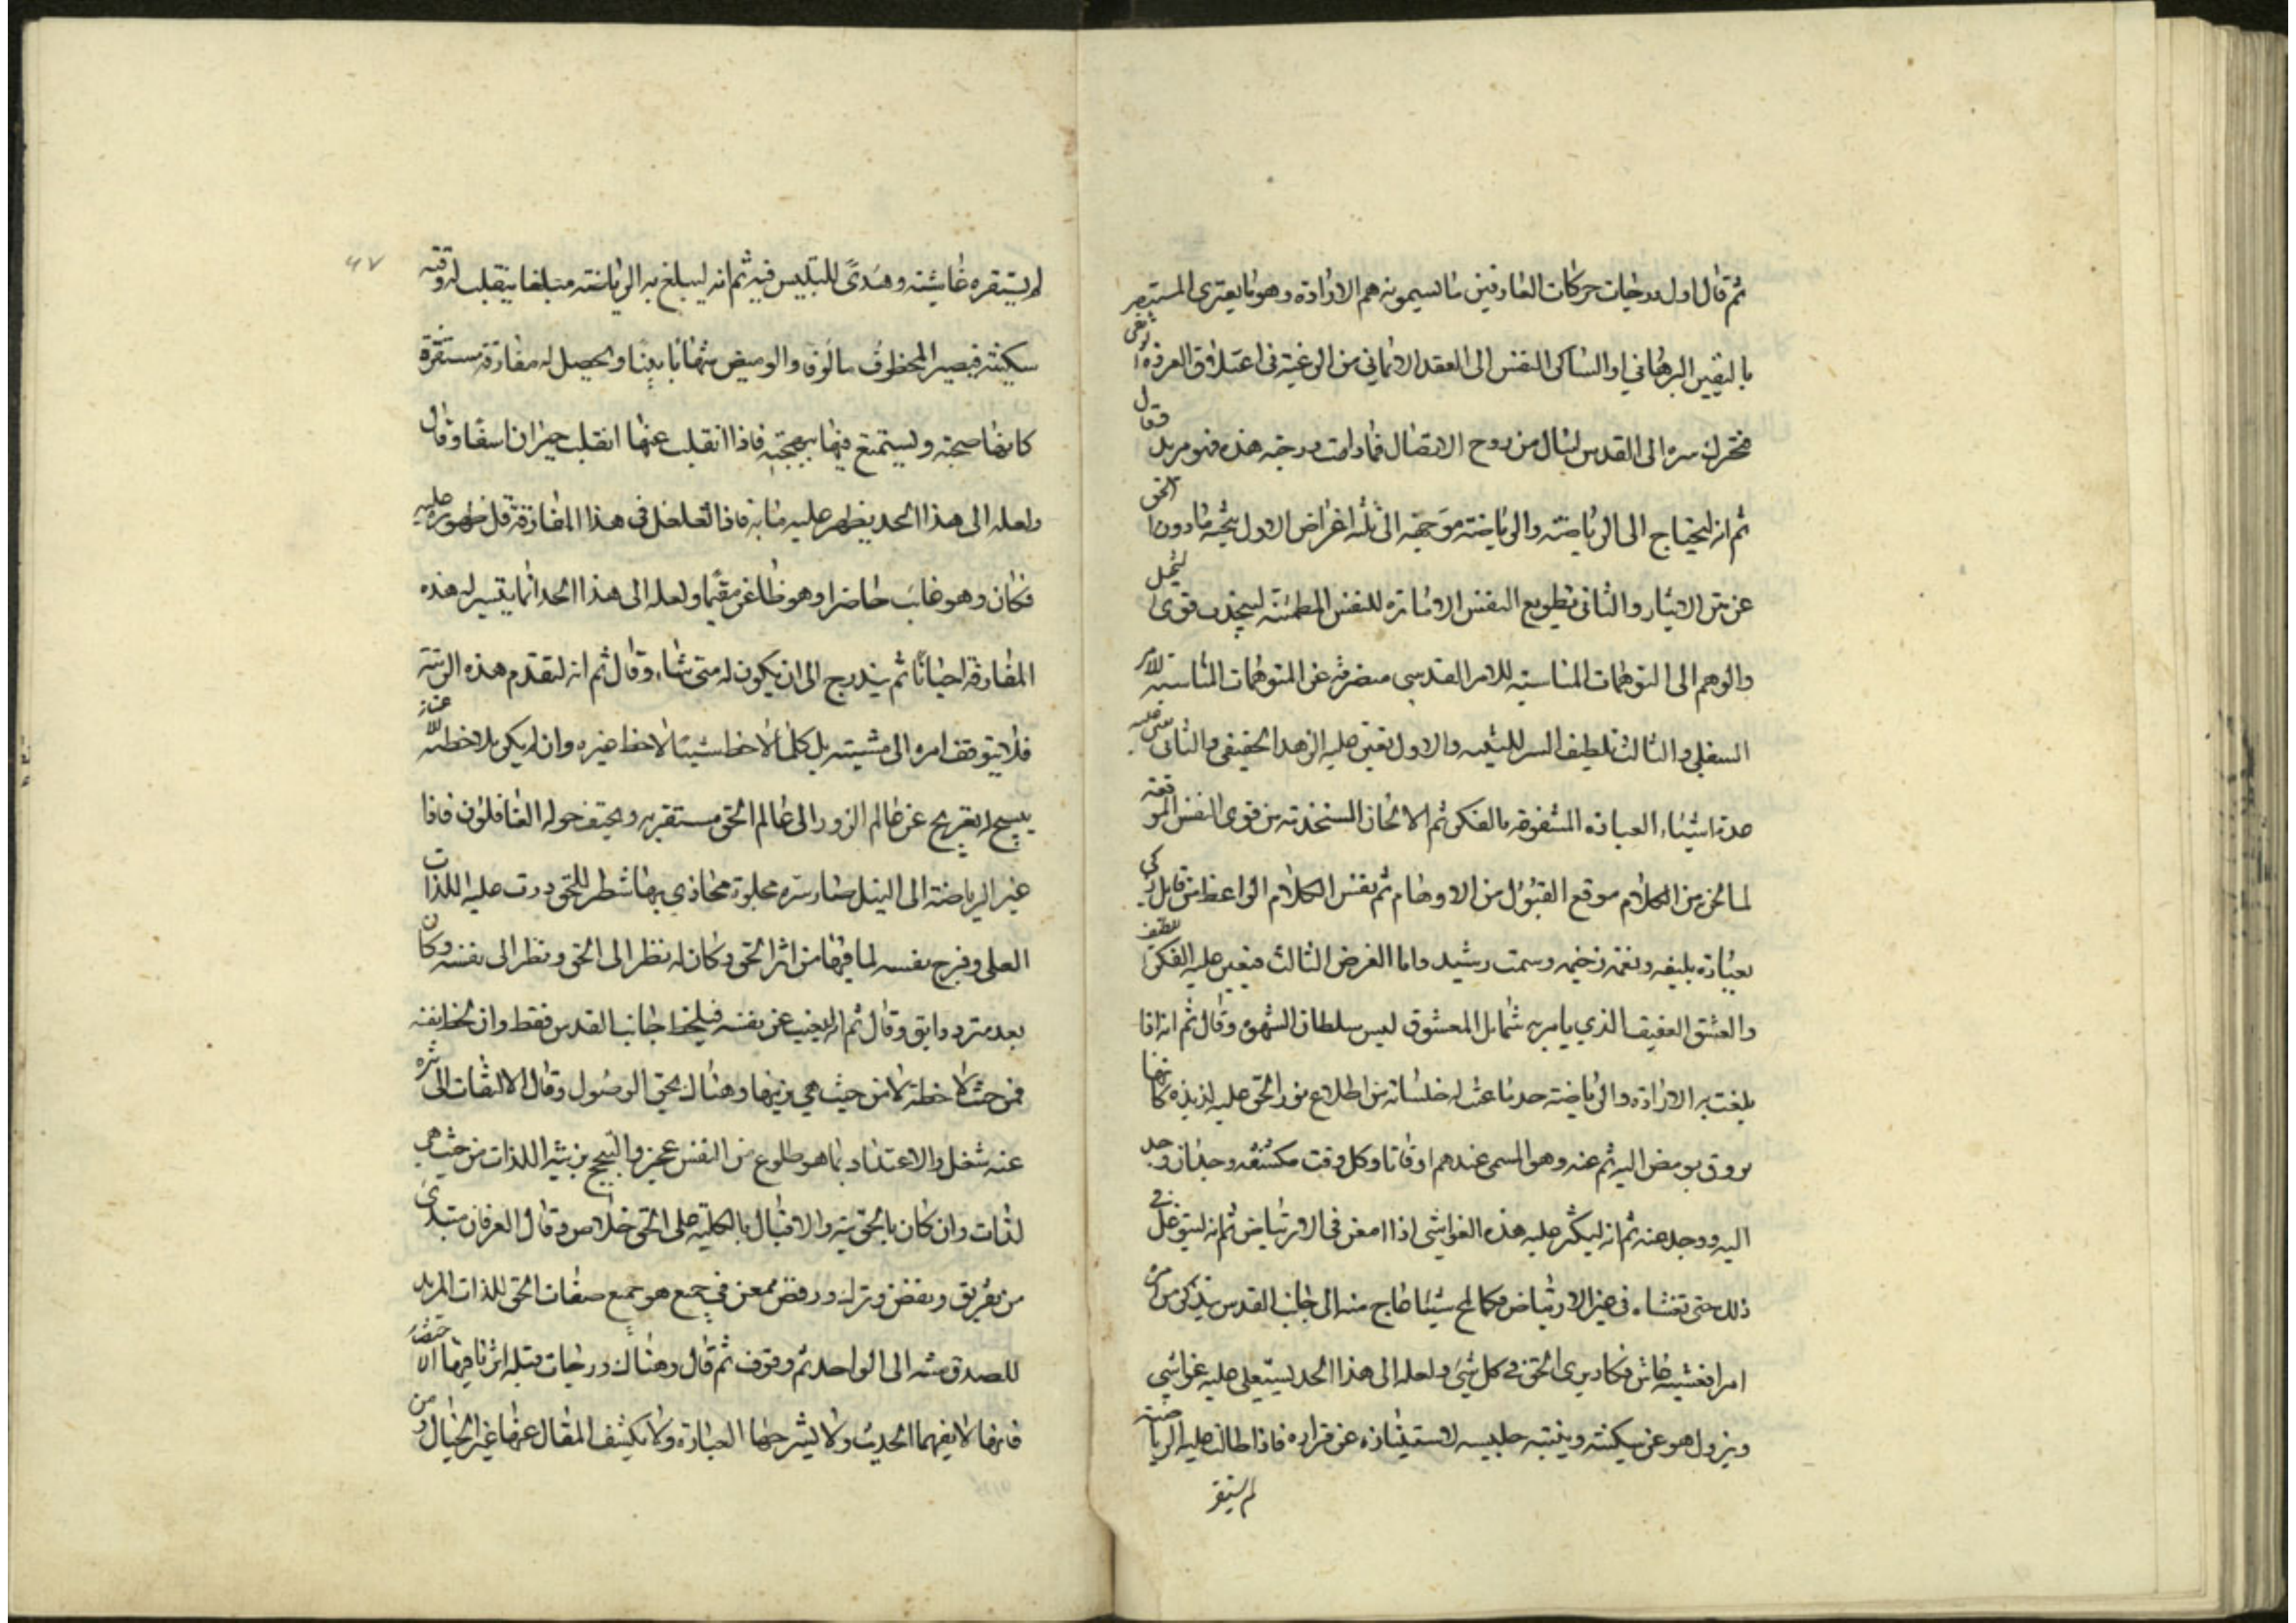 ثم قال اول درجات حركات العارفين ما يسمونه هم الارادة وهو ما يعترى المستبصر
باليقين البرهاني او الساكن النفس الى العقد الايماني من الرغبة في اعتلاق العروة الوثقى
فتحرك سره الى القدس لينال من روح الاتصال فما دامت درجته هذه فهو مريد فقال
ثم انه ليحتاج الى الرياضة والرياضة موجهة الى ثلثة اغراض الاول تنحية ما دون الحق
عن متن الايثار والثاني تطويع النفس الامارة للنفس المطمئنة لينجذب قوى التخيل
والوهم الى التوهمات المناسبة للامر القدسي منصرفة عن التوهمات المناسبة للامر
السفلي والثالث تلطيف السر للتنبه والاول يعين عليه الزهد الحقيقي والثاني يعين عليه
عدة اشياء العبادة المشفوعة بالفكر ثم الالحان المستخدمة من قوى النفس الموقعة
لما لحن من الكلام موقع القبول من الاوهام ثم نفس الكلام الواعظ من قايل ذكي
بعبارة بليغة ونغمة رخيمة وسمت رشيد واما الغرض الثالث فيعين عليه الفكر اللطيف
والعشق العفيف الذي يامر به شمايل المعشوق ليس سلطان الشهوة وقال ثم انه اذا
بلغت به الارادة والرياضة حدا ما عنت له خلسات من اطلاع نور الحق عليه لذيذة كانها
بروق تومض اليه ثم عنه وهو المسمى عندهم اوقاتا وكل وقت مكتنفه وجدان وجد
اليه ووجد عنه ثم انه ليكثر عليه هذه الغواشى اذا امعن في الارتياض ثم انه ليتوغل في
ذلك حتى تغشاه في غير الارتياض فكلما لمح شيئا عاج منه الى جانب القدس يتذكر من امره
امرا فغشيه غاش فيكاد يرى الحق في كل شيء ولعله الى هذا الحد يستعلي عليه غواشي
ويزول هو عن سكينته وينتبه جليسه لاستيفازه عن قراره فاذا طالت عليه الرياضة
لم يستفز
٤٧
لم يستفزه غاشية وهدى للتلبيس فيه ثم انه ليبلغ به الرياضة مبلغا ينقلب له وقته
سكينة فيصير المخطوف مالوفا والوميض شهابا بينا ويحصل له مفارقة مستقرة
كانها صحبة ويستمتع فيها ببهجته فاذا انقلب عنها انقلب حيران اسفا وقال
ولعله الى هذا الحد يظهر عليه ما به فاذا تغلغل في هذا المفارقة قل ظهوره عليه
فكان وهو غايب حاضرا وهو ظاعن مقيما ولعله الى هذا الحد انما يتيسر له هذه
المفارقة احيانا ثم يتدرج الى ان يكون له متى شاء وقال ثم انه ليتقدم هذه الرتبة
فلا يتوقف امره الى مشيته بل كلما لاحظ شيئا لاحظ غيره وان لم يكن ملاحظته
يسنح له تعريج عن عالم الزور الى عالم الحق مستقر به ويحتف حوله الغافلون فاذا
عبر الرياضة الى النيل صار سره مجلوة محاذي بها شطر الحق ودرت عليه اللذات
العلى وفرح بنفسه لما فيها من اثر الحق وكان له نظر الى الحق ونظر الى نفسه وكان
بعد مترددا بق وقال ثم انه ليغيب عن نفسه فيلحظ جانب القدس فقط وان لحظ نفسه
فمن حيث لاحظة لا من حيث هي بزينتها وهناك يحق الوصول وقال الالتفات الى
عنه شغل والاعتداد بما هو طلوع من النفس عجز والتبجح بزينة اللذات من حيث هي
لذات وان كان بالحق تيه والاقبال بالكلية على الحق خلاص وقال العرفان مبتدئ
من تفريق ونفض وترك ورفض ممعن في جمع هو جمع صفات الحق للذات المريد
للصدق منته الى الواحد ثم وقوف ثم قال وهناك درجات
فانها لا يفهمها الحديث ولا يشرحها العبارة ولا يكشف المقال عنها غير الخيال ومن